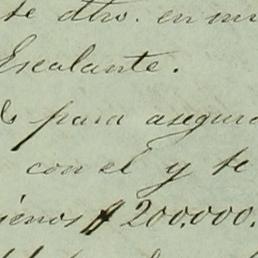 te dho. en mi
Escalante.
para asegura
con el y te
$200.000.